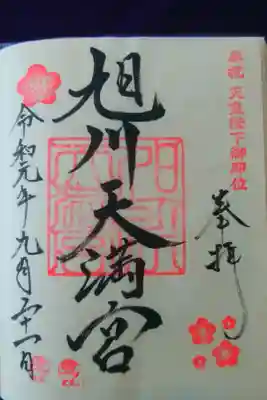 奉祝 天皇陛下御即位
奉拝
旭川天満宮
令和元年九月二十一日